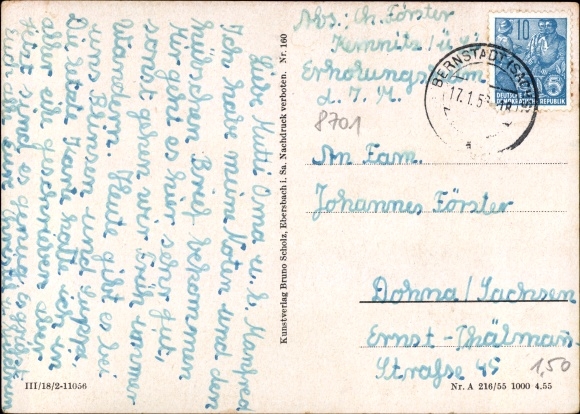 Abs.: Ch. Förster
Kemnitz / ü. L.
Erholungsheim
d. I. M.
8701
An Fam.
Johannes Förster
Dohna/Sachsen
Ernst-Thälmann-
Straße 45
1,50
10
5
DEUTSCHE
DEMOKRATISCHE REPUBLIK
BERNSTADT (SACHS)
17.1.5
Liebe Mutti, Oma u. s. Manfred
Ich habe meine Noten und den
hübschen Brief bekommen
Mir geht es hier sehr gut,
sonst gehen wir früh immer
wandern. Heute gibt es bei
uns Bohnen und Suppe.
Diese Karte hatte ich in
aber eine geschrieben der
Hort sind es genug
Kunstverlag Bruno Scholz, Ebersbach i. Sa. Nachdruck verboten. Nr. 160
III/18/2-11056
Nr. A 216/55 1000 4.55